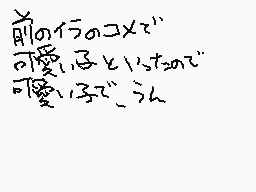 前のイラのコメで
可愛い子といったので
可愛い子で、うん